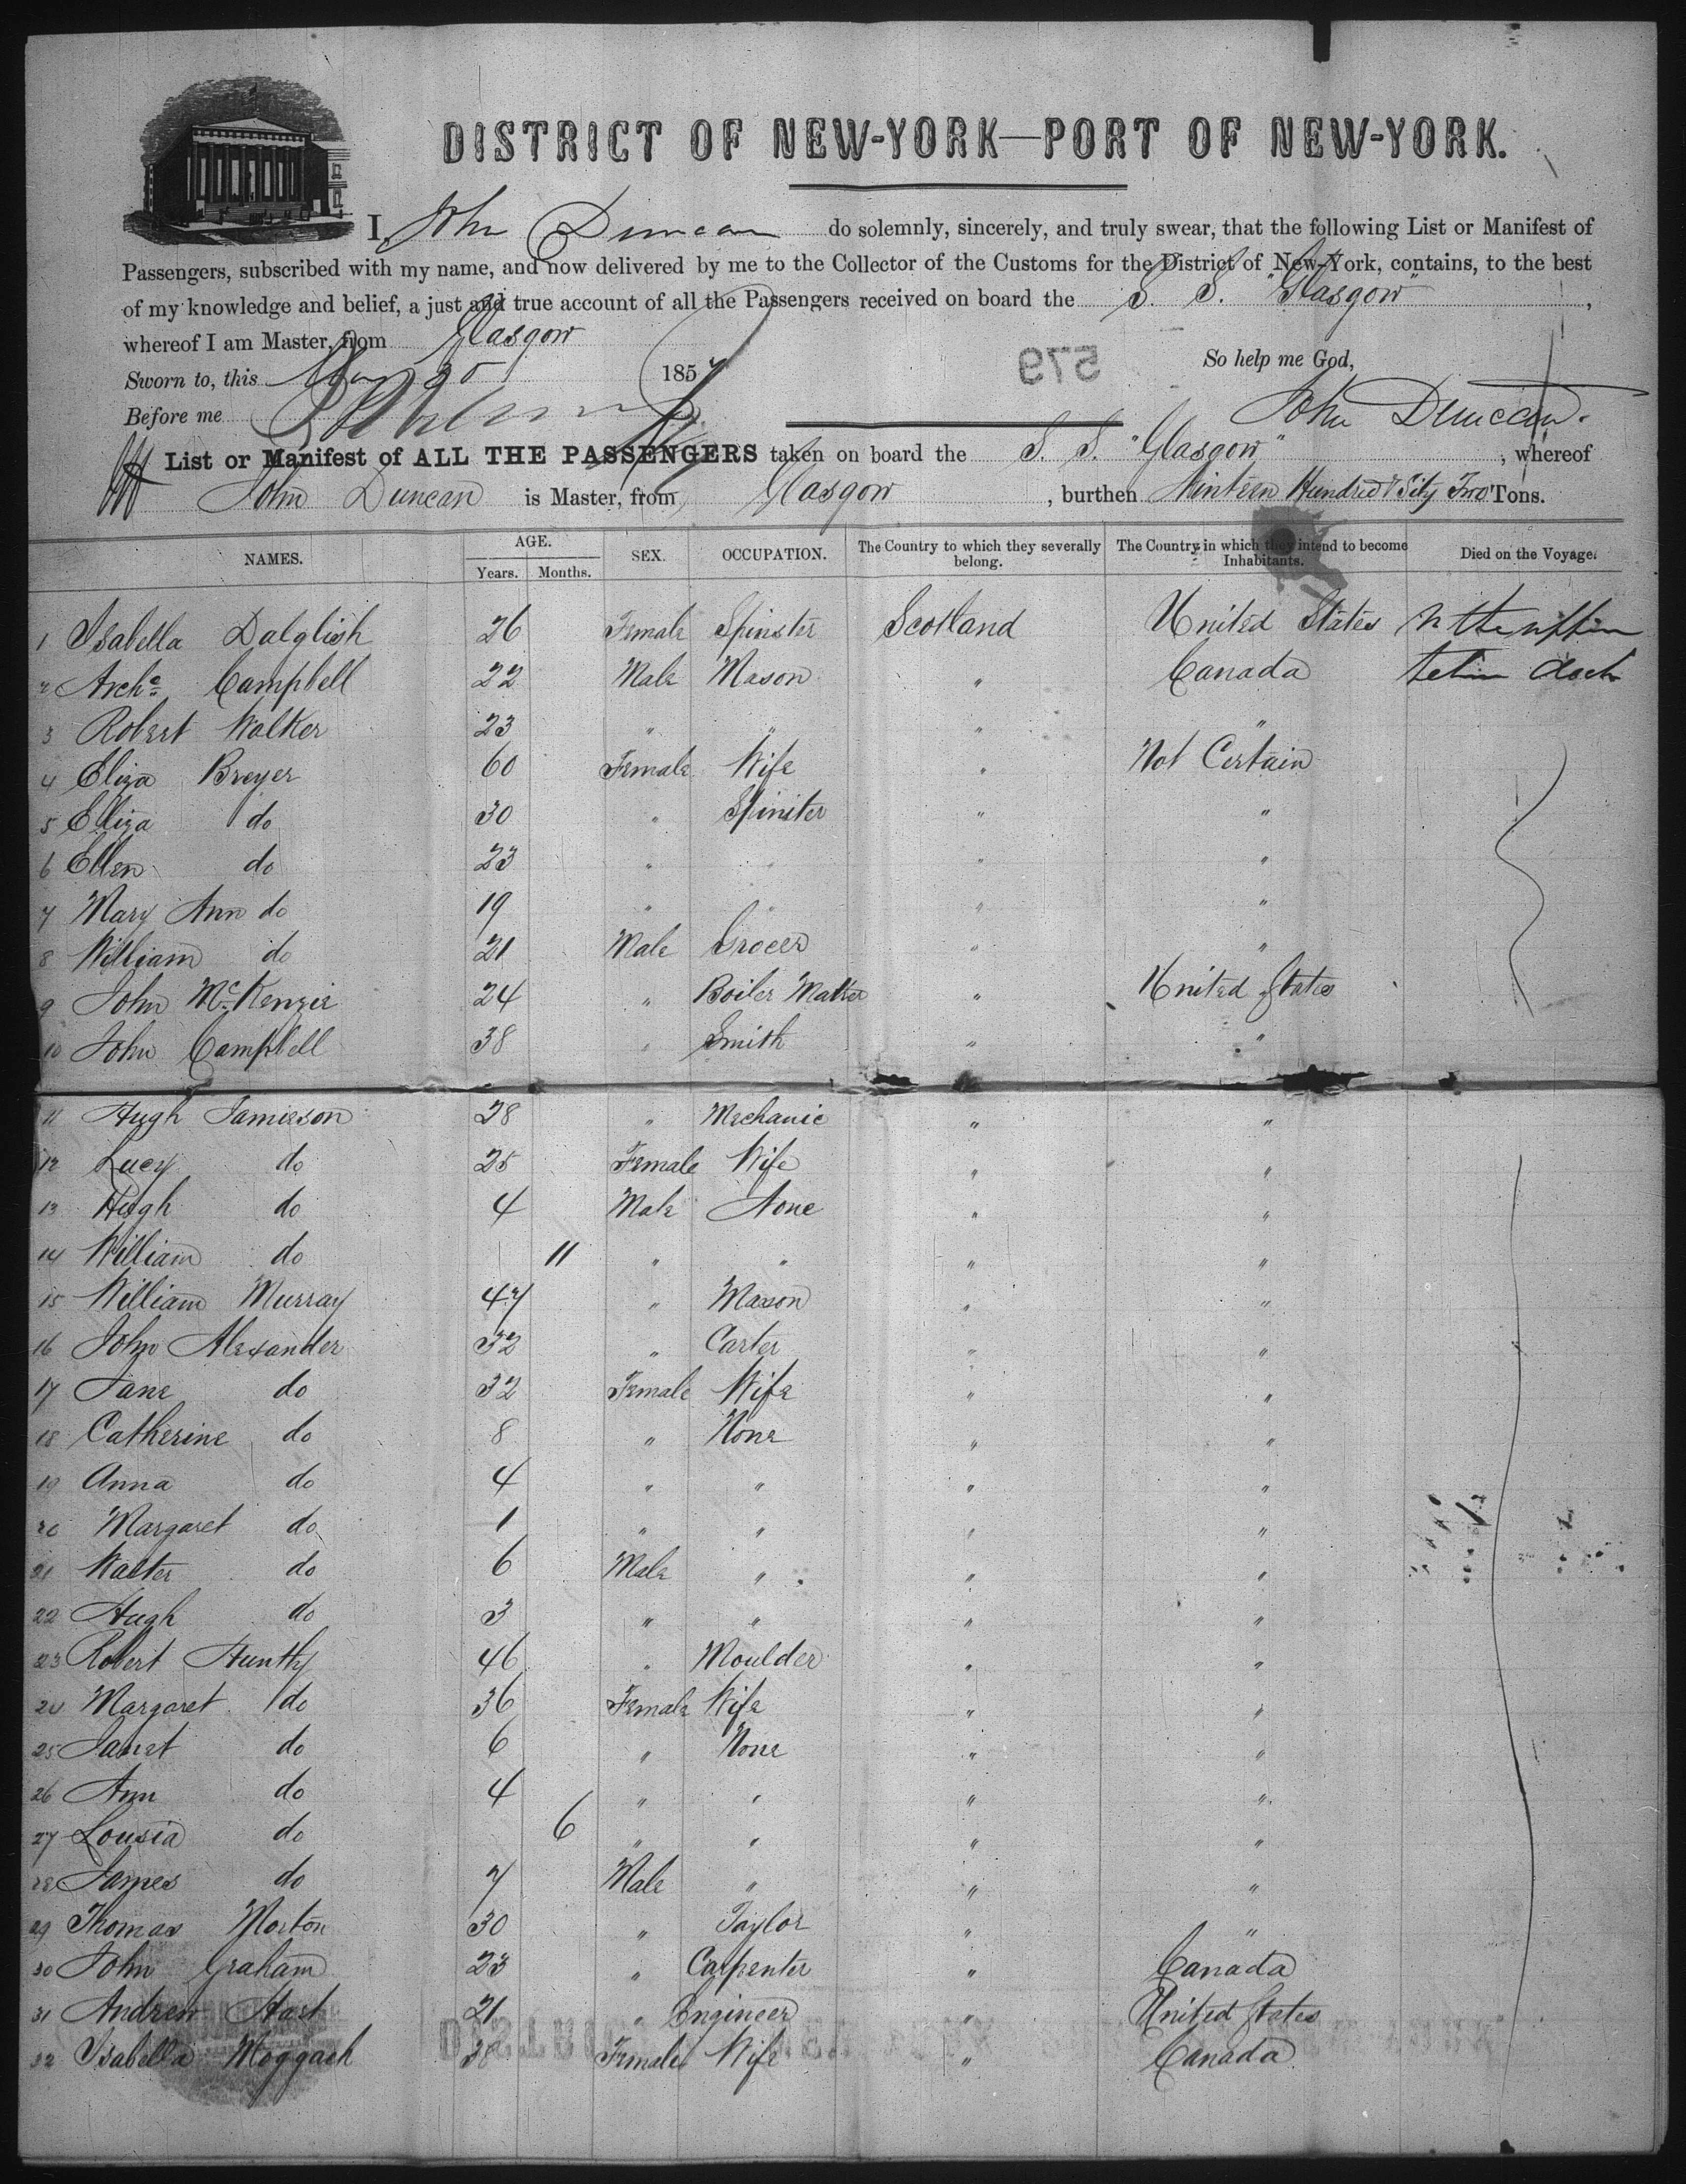 DISTRICT OF NEW-YORK—PORT OF NEW-YORK.
I, John Duncan do solemnly, sincerely, and truly swear, that the following List or Manifest of
Passengers, subscribed with my name, and now delivered by me to the Collector of the Customs for the District of New-York, contains, to the best
of my knowledge and belief, a just and true account of all the Passengers received on board the S. S. "Glasgow",
whereof I am Master, from Glasgow
579
So help me God,
Sworn to, this May 30 1857
Before me
John Duncan.
List or Manifest of ALL THE PASSENGERS taken on board the S. S. "Glasgow", whereof
John Duncan is Master, from Glasgow, burthen Ninteen Hundred & Sity Two Tons.
NAMES. AGE. Years. Months. SEX. OCCUPATION. The Country to which they severally belong. The Country in which they intend to become Inhabitants. Died on the Voyage.
1 Isabella Dalglish 26 Female Spinster Scotland United States
2 Archd. Campbell 22 Male Mason " Canada
3 Robert Walker 23 " " " "
4 Eliza Breyer 60 Female Wife " Not Certain
5 Elliza do 30 " Spinster " "
6 Ellen do 23 " " " "
7 Mary Ann do 19 " " " "
8 William do 21 Male Grocer " "
9 John McKenzie 24 " Boiler Matter " United States
10 John Campbell 38 " Smith " "
11 Hugh Jamieson 28 " Mechanic " "
12 Lucy do 25 Female Wife " "
13 Hugh do 4 Male None " "
14 William do 11 " " " "
15 William Murray 47 " Mason " "
16 John Alexander 32 " Carter " "
17 Jane do 32 Female Wife " "
18 Catherine do 8 " None " "
19 Anna do 4 " " " "
20 Margaret do 1 " " " "
21 Walter do 6 Male " " "
22 Hugh do 3 " " " "
23 Robert Huntly 46 " Moulder " "
24 Margaret do 36 Female Wife " "
25 Janet do 6 " None " "
26 Ann do 4 " " " "
27 Lousia do 6 " " " "
28 James do 7 Male " " "
29 Thomas Morton 30 " Taylor " "
30 John Graham 23 " Carpenter " Canada
31 Andrew Hart 21 " Engineer " United States
32 Isabella Moggach 38 Female Wife " Canada